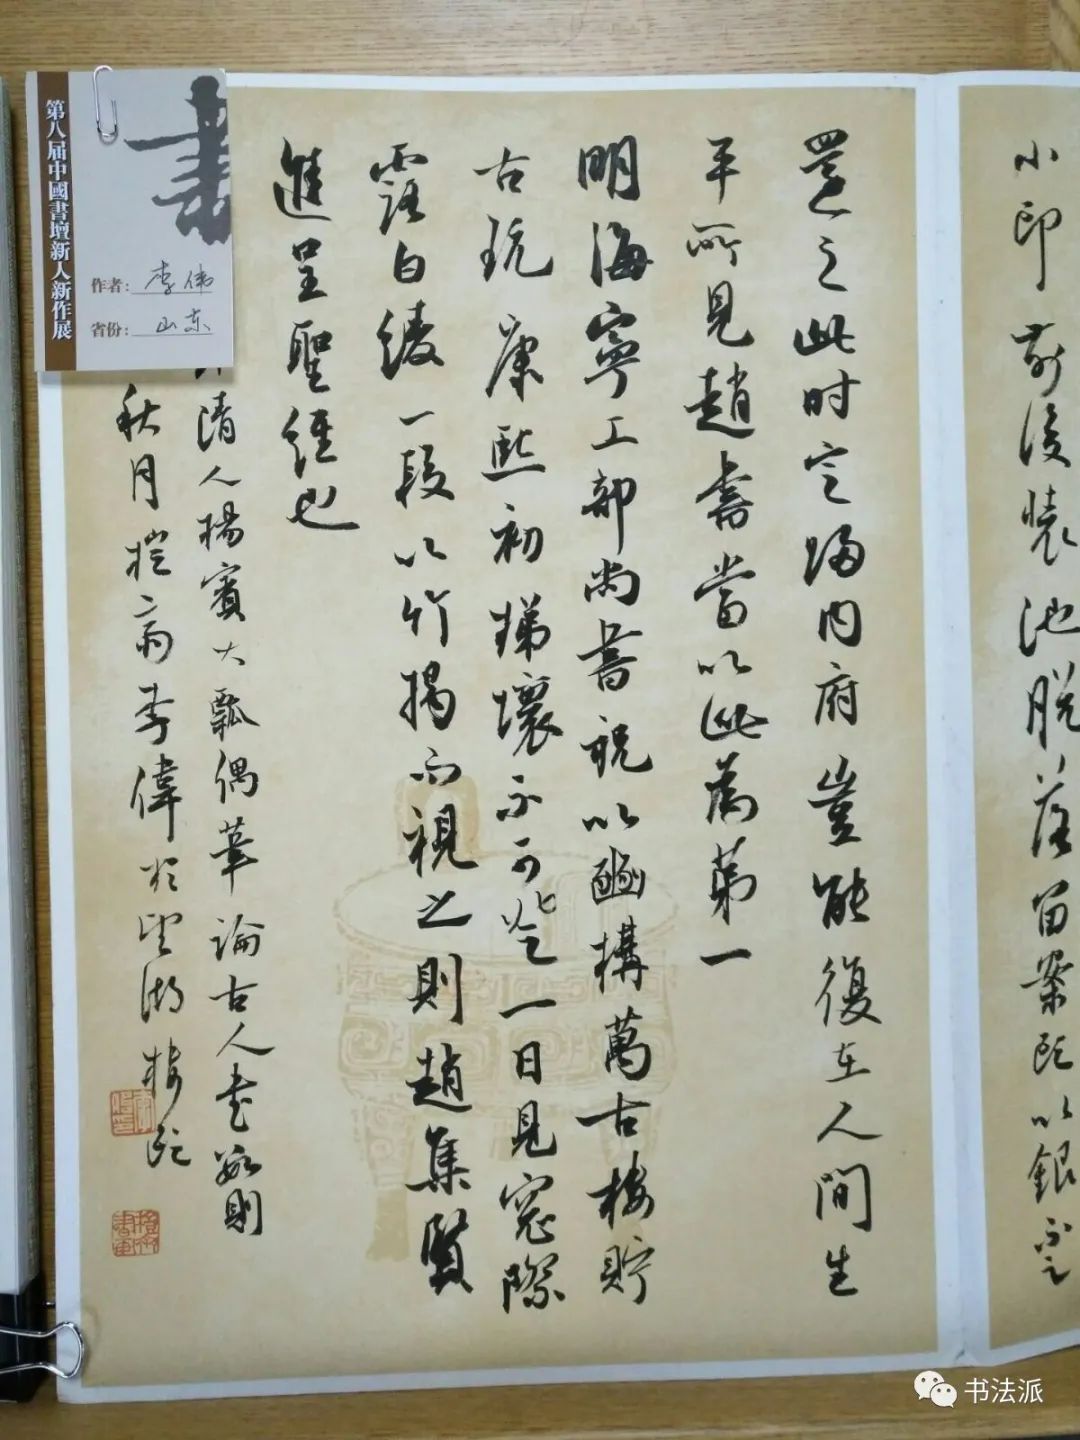 小印前後裝池脱落留案既以銀不足
還之此时定歸内府豈能復在人間生
平所見趙書當以此為第一
明海寧工部尚書祝以豳構萬古樓貯
古玩康熙初梯壞不可登一日見窓際
露白綾一段以竹揭而視之則趙集賢
進呈聖經也
清人楊賓大瓢偶筆論古人書數則
秋月 齋李偉於望湖樓記
第八届中國書壇新人新作展
書
作者:李伟
省份:山东
书法派